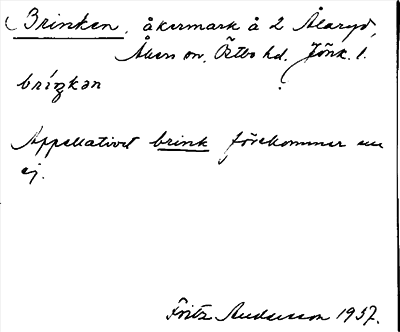 (Brinken, åkermark å 2 Ålaryd,
Åkers sn, Östbo hd. Jönk. l.
bríŋkən
Appellativet brink förekommer nu
ej.
Fritz Andersson 1937.